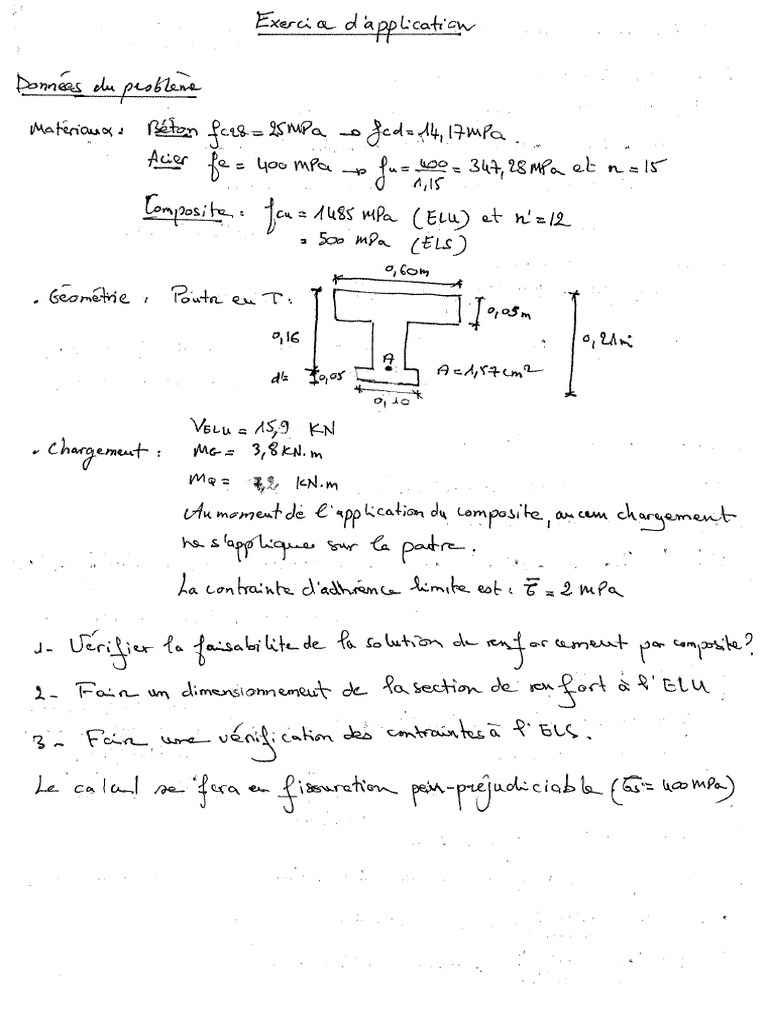 Exercice d'application
Données du problème
Matériaux : Béton fc28 = 25 MPa → fcd = 14,17 MPa.
Acier fe = 400 MPa → fu = 400/1,15 = 347,28 MPa et n = 15
Composite : fcu = 1485 MPa (ELU) et n' = 12
= 500 MPa (ELS)
0,60m
. Géométrie : Poutre en T :
0,05m
0,16
0,21m
A
d'=
0,05
A = 1,57 cm²
0,10
VELU = 15,9 KN
. Chargement : MG = 3,8 KN.m
MQ = 7,2 KN.m
Au moment de l'application du composite, aucun chargement
ne s'applique sur la poutre.
La contrainte d'adhérence limite est : τ̅ = 2 MPa
1- Vérifier la faisabilité de la solution de renforcement par composite ?
2- Faire un dimensionnement de la section de renfort à l'ELU
3- Faire une vérification des contraintes à l'ELS.
Le calcul se fera en fissuration peu-préjudiciable (σ̅s = 400 MPa)